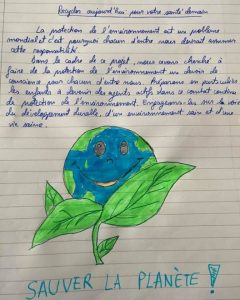 Recycler aujourd'hui pour votre santé demain
La protection de l'environnement est un problème
mondial et c'est pourquoi chacun d'entre nous devrait assumer
cette responsabilité.
Dans le cadre de ce projet, nous avons cherché à
faire de la protection de l'environnement un devoir de
conscience pour chacun d'entre nous. Préparons en particulier
les enfants à devenir des agents actifs dans ce combat continu
de protection de l'environnement. Engageons-nous sur la voie
du développement durable, d'un environnement sain et d'une
vie saine.
SAUVER LA PLANÈTE !